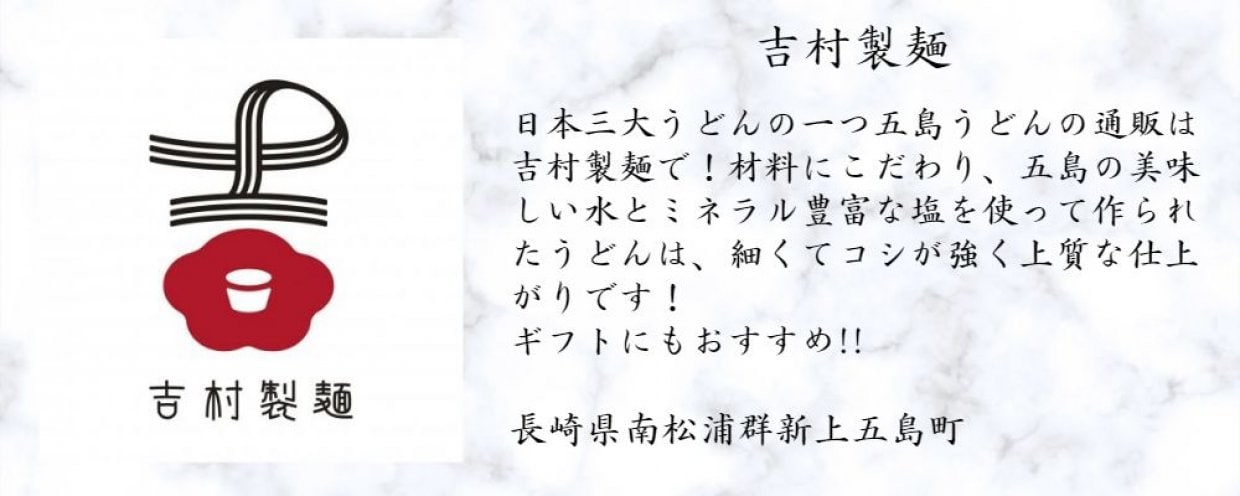 吉村製麺
吉村製麺
日本三大うどんの一つ五島うどんの通販は
吉村製麺で！材料にこだわり、五島の美味
しい水とミネラル豊富な塩を使って作られ
たうどんは、細くてコシが強く上質な仕上
がりです！
ギフトにもおすすめ!!
長崎県南松浦群新上五島町